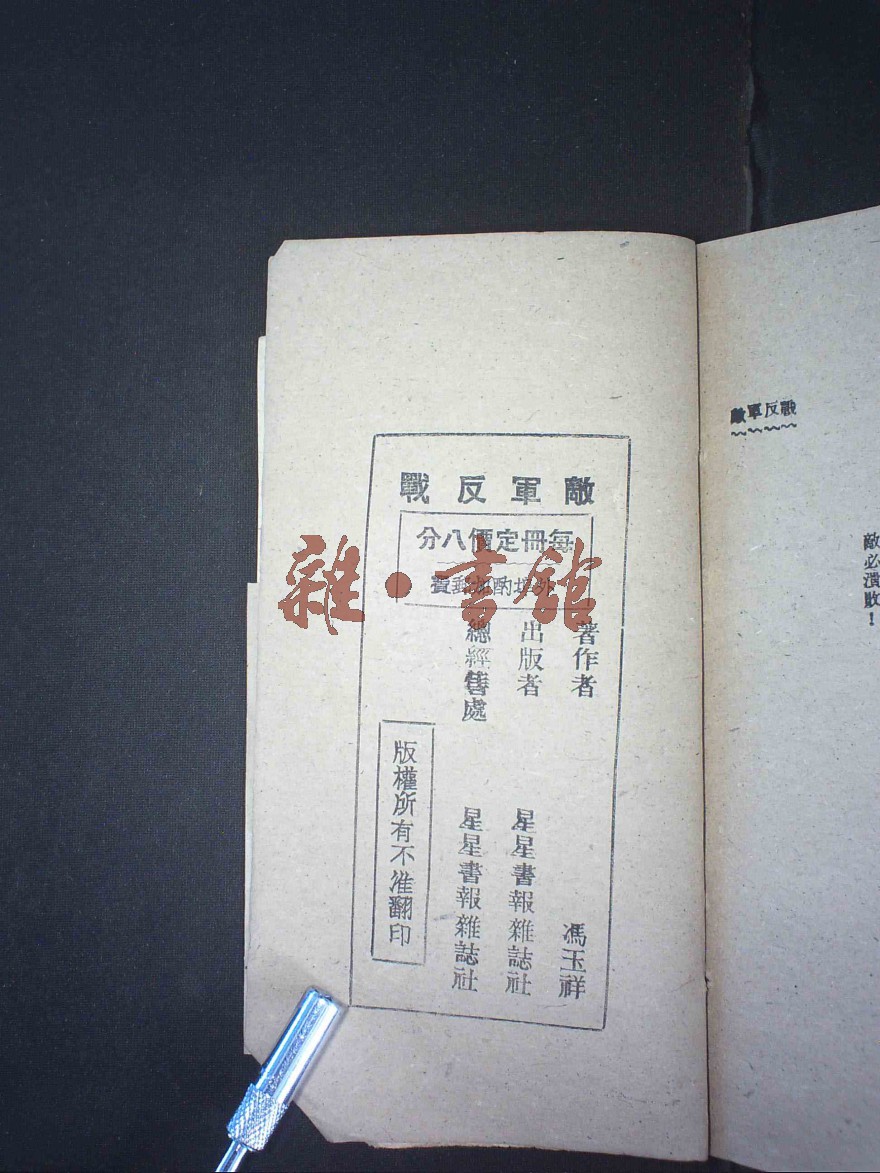 敵軍反戰
每冊定價八分
外埠酌加郵費
著作者 馮玉祥
出版者 星星書報雜誌社
總經售處 星星書報雜誌社
版權所有不准翻印
敵軍反戰
敵必潰敗！
雜·書館